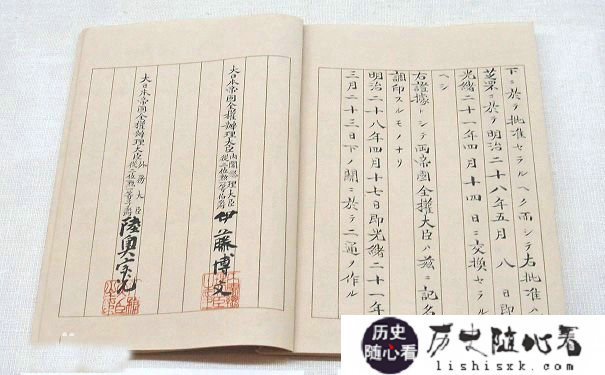 下ニ於テ批准セラルヘク而シテ右批准ハ
芝罘ニ於テ明治二十八年五月八日即
光緒二十一年四月十四日ニ交換セラル
ヘシ
右證據トシテ両帝國全權大臣ハ茲ニ記名
調印スルモノナリ
明治二十八年四月十七日即光緒二十一年
三月二十三日下ノ關ニ於テ二通ヲ作ル
大日本帝國全權辦理大臣
内閣總理大臣
從二位勲一等伯爵
伊藤博文
大日本帝國全權辦理大臣
外務大臣
從二位勲一等子爵
陸奥宗光
历史
随心看
历史随心看
lishisxk.com